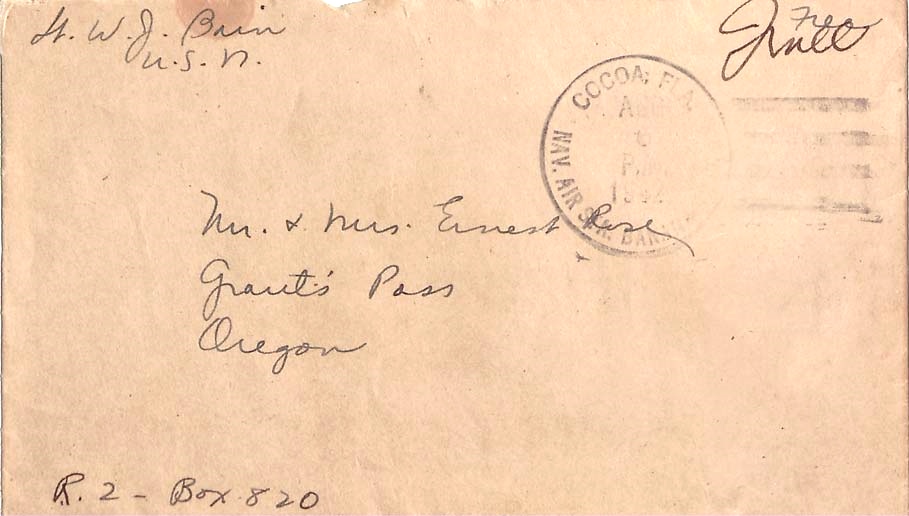 Lt. W. J. Bain
U.S.N.
Free
COCOA, FLA.
6
P.M.
NAV. AIR STA.
Mr. & Mrs. Ernest Rose
Grant's Pass
Oregon
R. 2 - Box 820